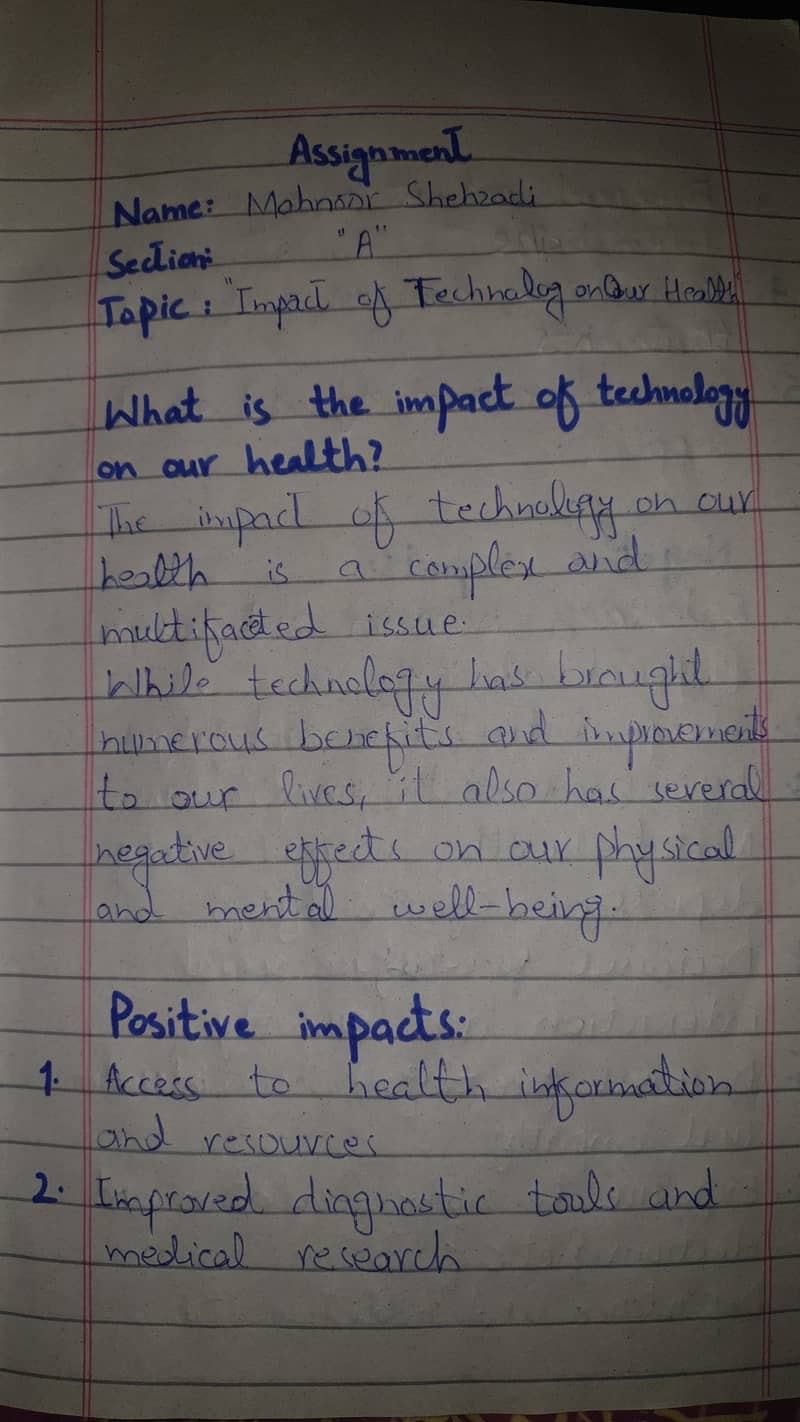 Assignment
Name: Mahnoor Shehzadi
Section: "A"
Topic: "Impact of Technalog on Our Health"
What is the impact of technology
on our health?
The impact of technology on our
health is a complex and
multifaceted issue.
While technology has brought
numerous benefits and improvements
to our lives, it also has several
negative effects on our physical
and mental well-being.
Positive impacts:
1. Access to health information
and resources
2. Improved diagnostic tools and
medical research